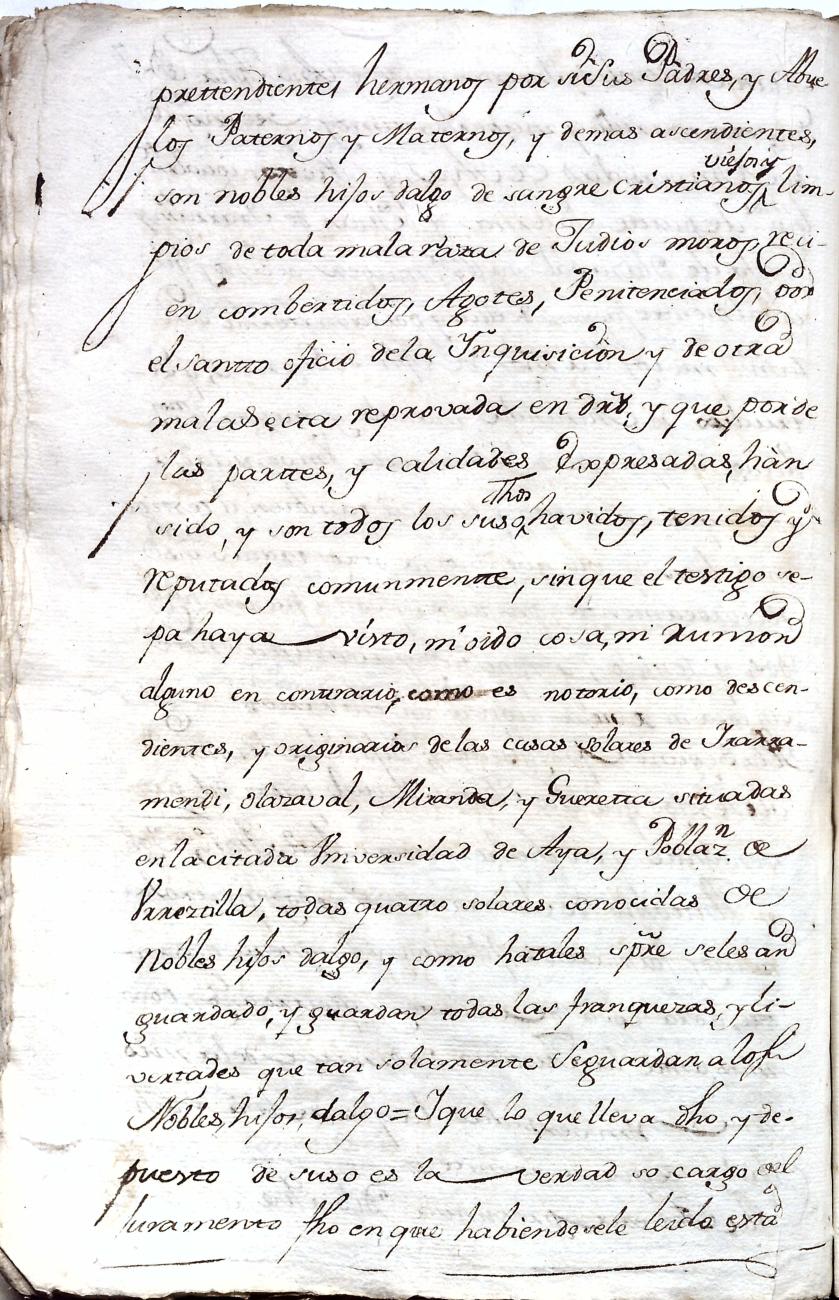 prettendientes hermanos por si Sus Padres, y Abue
los Paternos y Maternos, y demas ascendientes,
viejos y
son nobles hijos dalgo de sangre cristianos lim-
pios de toda mala raza de Judios moros, reci-
en combertidos, Agotes, Penitenciados por
el santto oficio de la Inquisicion y de otra
mala Secta reprovada en dro, y que por de
las parttes, y calidades Expresadas, hàn
dhos
sido, y son todos los suso, havidos, tenidos y
reputados comunmentte, sin que el testigo se-
pa haya visto, ni oido cosa, ni Rumor
alguno en contrario, como es notorio, como descen-
dientes, y originarios de las casas solares de Irarra-
mendi, Olazaval, Miranda, y Gueretta situadas
en la citada Vniversidad de Aya, y Poblazn de
Vrreztilla, todas quatro solares conocidas de
Nobles hijos dalgo, y como ha tales spre se les an
guardado, y guardan todas las franquezas, y li-
vertades que tan solamente Seguardan a los
Nobles, hijos, dalgo = Y que lo que lleva dho, y de-
puesto de suso es la verdad so cargo del
Juramento fho en que habiendosele leido esta